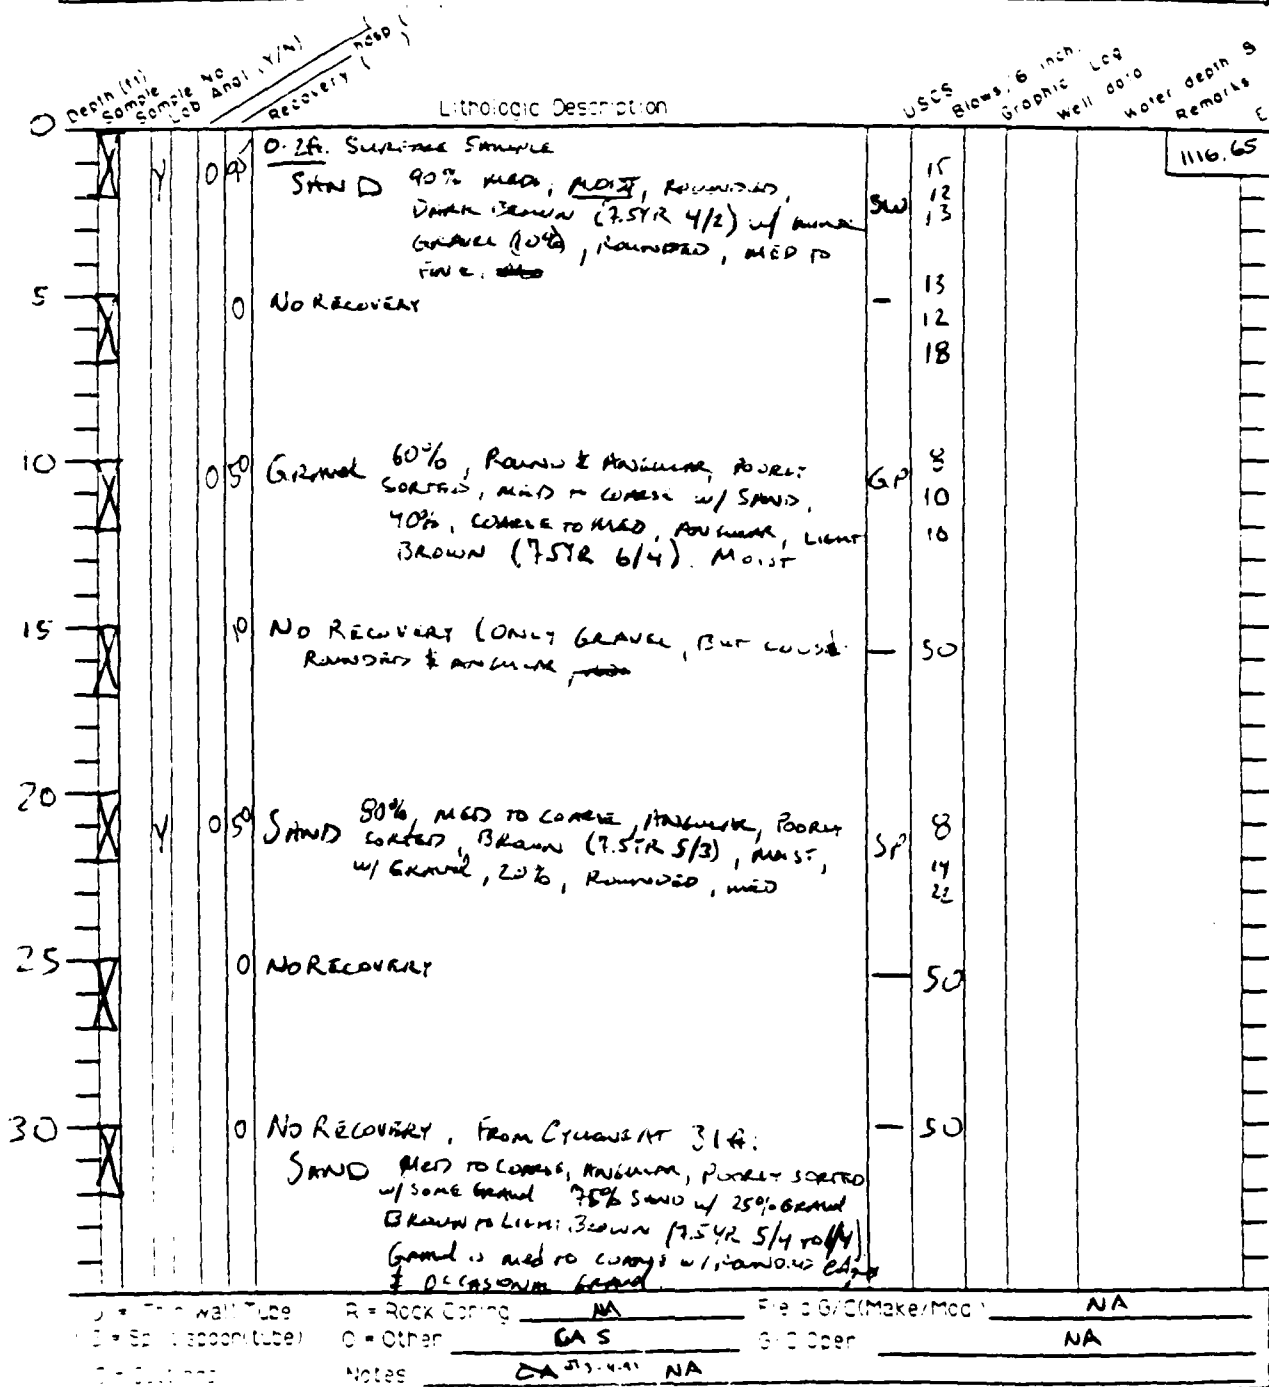 Depth (ft)
Sample
Sample No
Lab Anal. (Y/N)
Recovery (
Lithologic Description
USCS
Blows/6 inch.
Graphic Log
Well data
Water depth
Remarks
0
0-2ft. SURFACE SAMPLE
1116.65
Y 0 SAND 90% MED, MOIST, ROUNDED, SW 15
DARK BROWN (7.5YR 4/2) w/ 12
GRAVEL (10%), ROUNDED, MED TO 13
FINE.
5 0 NO RECOVERY – 13
12
18
10 0 50 GRAVEL 60%, ROUND & ANGULAR, POORLY GP 8
SORTED, MED TO COARSE w/ SAND, 10
40%, COARSE TO MED, ANGULAR, LIGHT 10
BROWN (7.5YR 6/4). MOIST
15 NO RECOVERY (ONLY GRAVEL, BUT — 50
ROUNDED & ANGULAR,
20
Y 0 50 SAND 80%, MED TO COARSE, ANGULAR, POORLY SP 8
SORTED, BROWN (7.5YR 5/3), MOIST, 14
w/ GRAVEL, 20%, ROUNDED, MED 22
25 0 NO RECOVERY — 50
30 0 NO RECOVERY, FROM CYCLONE AT 31 ft. — 50
SAND MED TO COARSE, ANGULAR, POORLY SORTED
w/ SOME GRAVEL 75% SAND w/ 25% GRAVEL
BROWN TO LIGHT BROWN (7.5YR 5/4 TO 6/4)
GRAVEL IS MED TO COARSE w/ ROUNDED
& OCCASIONAL GRAVEL
Wall Tube R = Rock Coring NA Field G/C(Make/Mod.) NA
spoon(tube) O = Other GAS G/C Oper NA
Notes NA